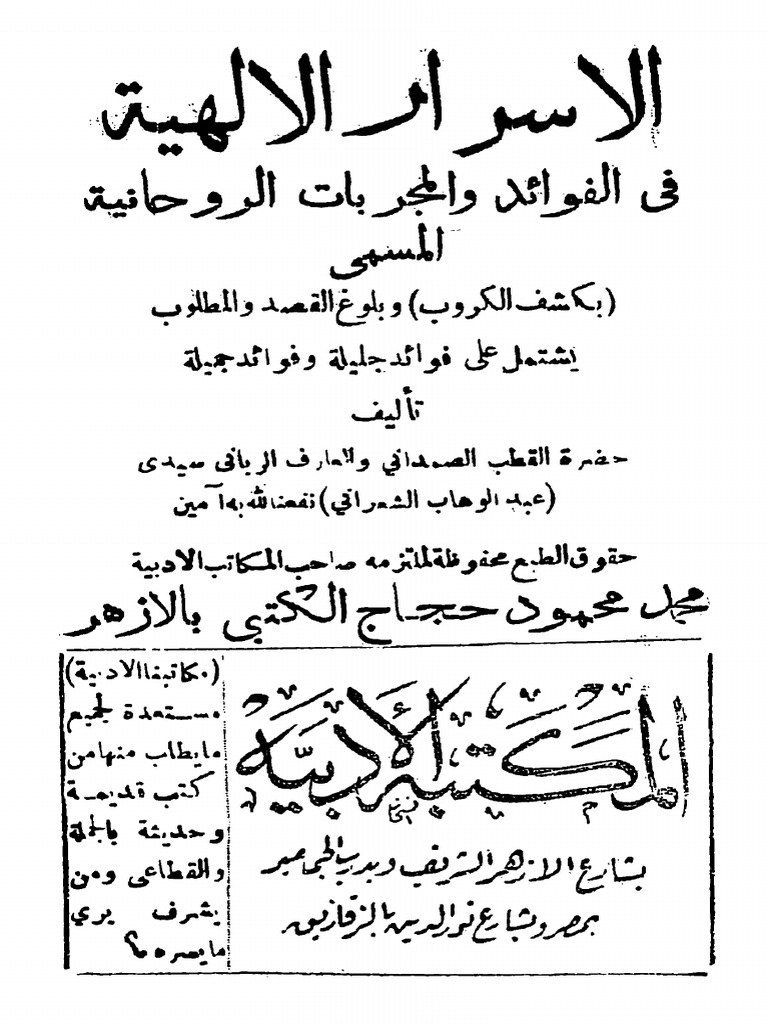 الاسرار الالهية
فى الفوائد والمجربات الروحانية
المسمى
(بكشف الكروب) وبلوغ القصد والمطلوب
يشتمل على فوائد جليلة وفوائد جميلة
تأليف
حضرة القطب الصمدانى والعارف الربانى سيدى
(عبد الوهاب الشعرانى) نفعنا الله به آمين
حقوق الطبع محفوظة لملتزمه صاحب المكاتب الادبية
محمد محمود حجاج الكتبى بالازهر
المكتبة الأدبية
بشارع الازهر الشريف وبدرب الجماميز
بمصر وبشارع نور الدين بالزقازيق
(مكاتبنا الادبية)
مستعدة لجميع
مايطلب منها من
كتب قديمة
وحديثة بالجملة
والقطاعى ومن
يشرف يرى
مايسره